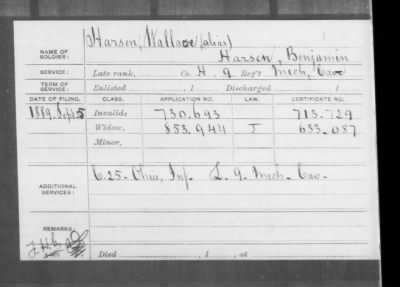 Harsen, Wallace (alias)
NAME OF SOLDIER: Harsen, Benjamin
SERVICE: Late rank, Co. H. 9 Reg't Mich. Cav
TERM OF SERVICE: Enlisted , 1 Discharged , 1
DATE OF FILING. CLASS. APPLICATION NO. LAW. CERTIFICATE NO.
1889. Sept. 5 Invalid, 730.693 713.729
Widow, 853.944 I 633.087
Minor,
ADDITIONAL SERVICES: C. 25- Ohio, Inf. L. 9. Mich. Cav-
REMARKS:
Died , 1 , at